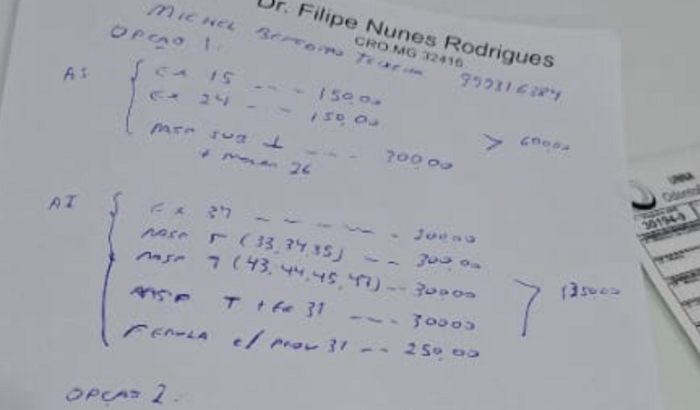 Dr. Filipe Nunes Rodrigues
CRO.MG 32416
MICHEL Teixeira 999316284
OPÇÃO 1:
AS
EX 15 --- 150,00
EX 24 -- 150,00
RASP SUB ---- 300,00
+ 26
> 600,00
AI
EX 37 ----- 200,00
RASP 5 (33,34,35) -- 300,00
RASP 7 (43,44,45,47) -- 300,00
RASP T + EX 31 --- 300,00
FERULA c/ PROV 31 -- 250,00
1350,00
OPÇÃO 2:
30194-9